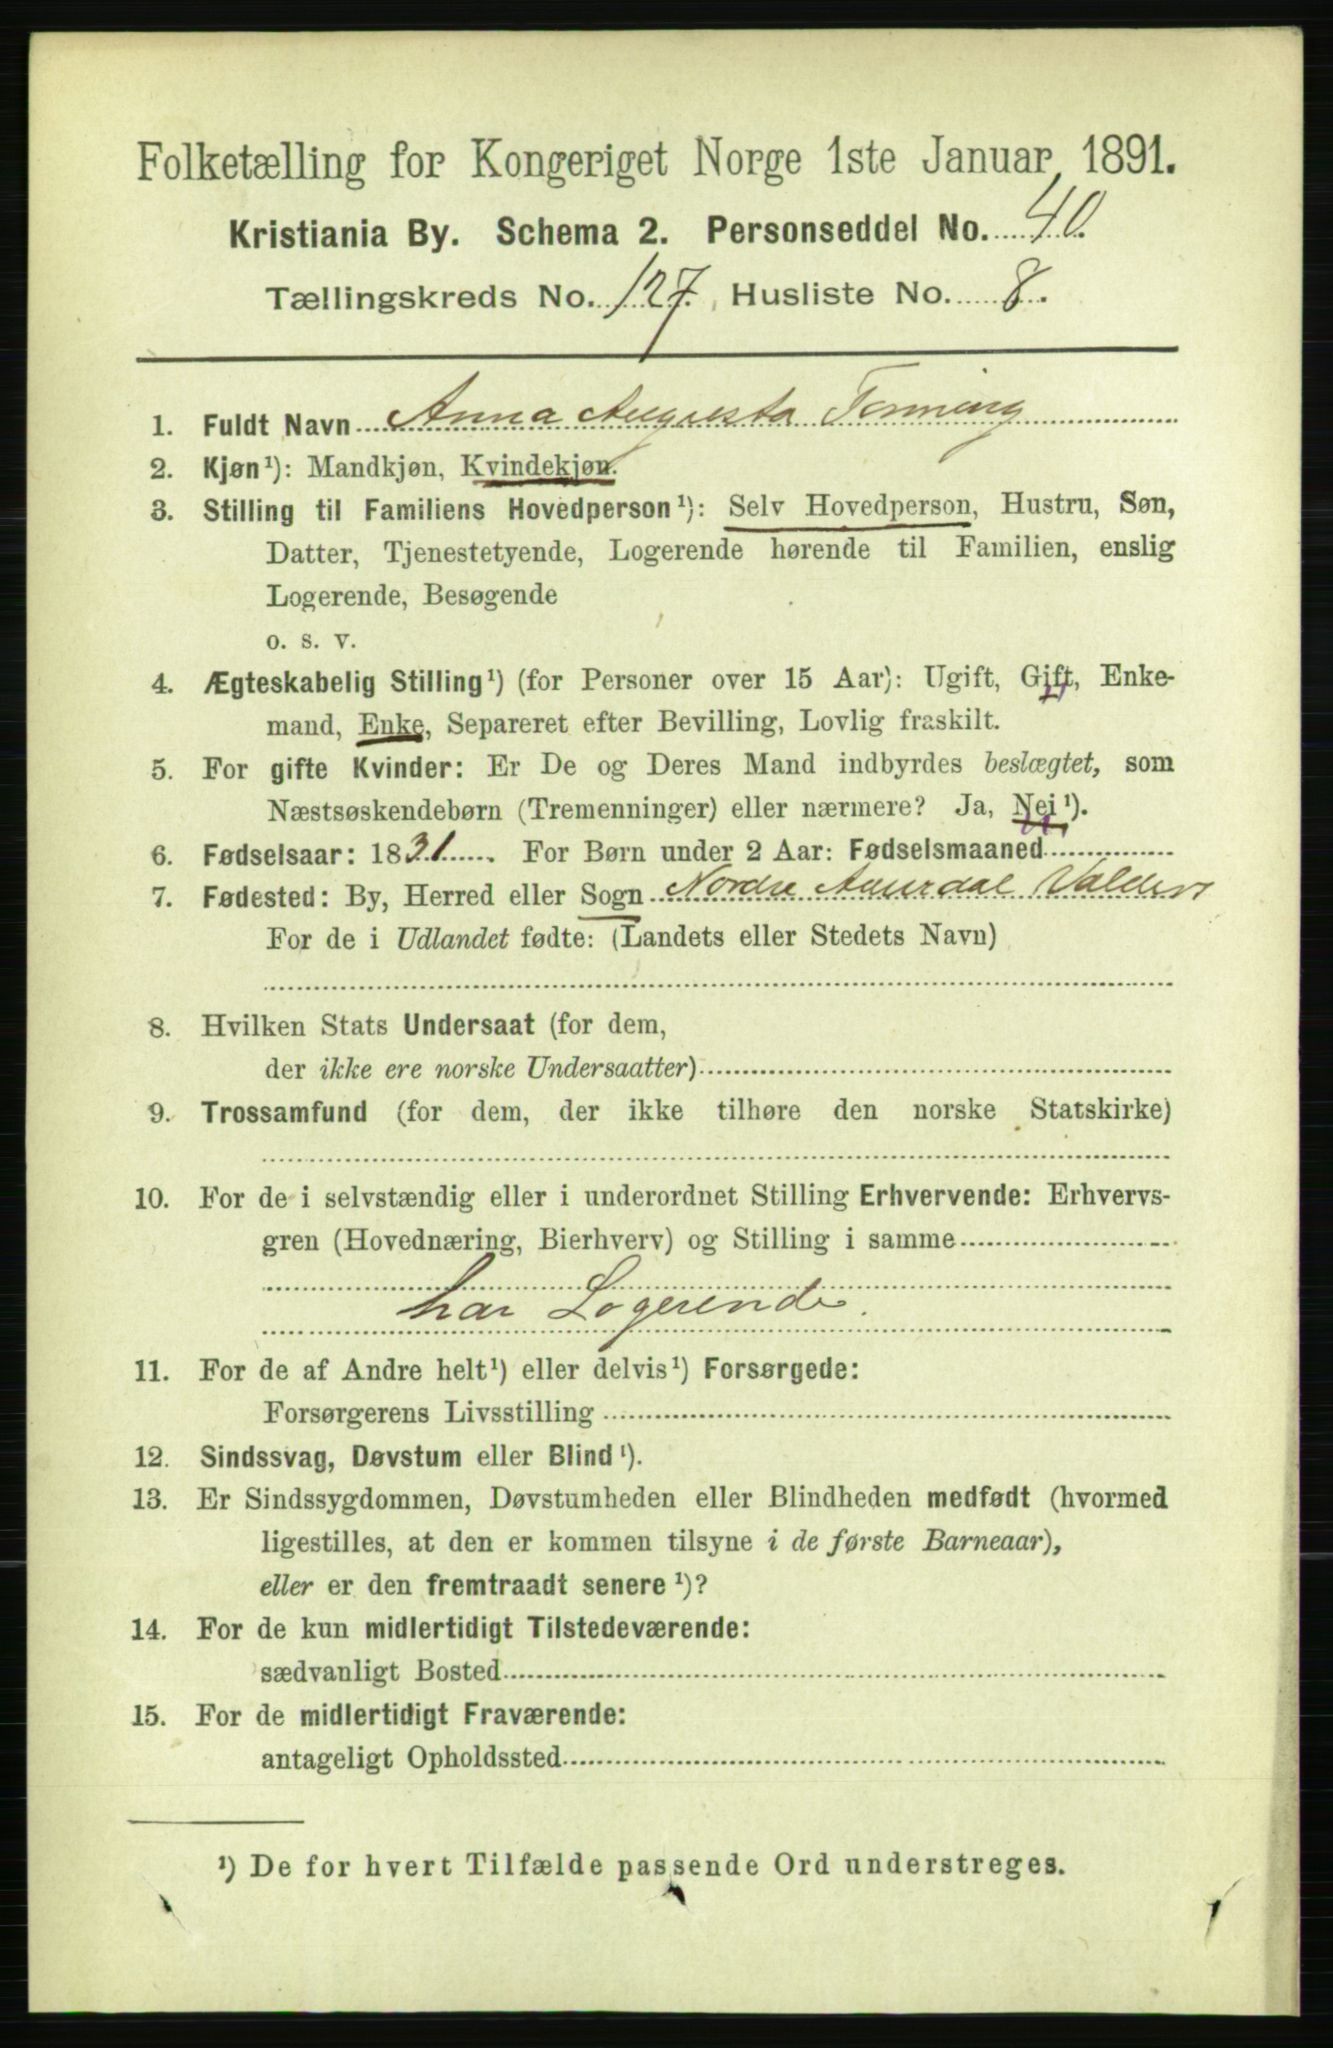 Folketælling for Kongeriget Norge 1ste Januar 1891.
Kristiania By. Schema 2. Personseddel No. 40.
Tællingskreds No. 127. Husliste No. 8.
1. Fuldt Navn Anna Augusta
2. Kjøn¹): Mandkjøn, Kvindekjøn.
3. Stilling til Familiens Hovedperson¹): Selv Hovedperson, Hustru, Søn,
Datter, Tjenestetyende, Logerende hørende til Familien, enslig
Logerende, Besøgende
o. s. v.
4. Ægteskabelig Stilling¹) (for Personer over 15 Aar): Ugift, Gift, Enke-
mand, Enke, Separeret efter Bevilling, Lovlig fraskilt.
5. For gifte Kvinder: Er De og Deres Mand indbyrdes beslægtet, som
Næstsøskendebørn (Tremenninger) eller nærmere? Ja, Nei¹).
6. Fødselsaar: 1831. For Børn under 2 Aar: Fødselsmaaned
7. Fødested: By, Herred eller Sogn Nordre Aurdal Valders
For de i Udlandet fødte: (Landets eller Stedets Navn)
8. Hvilken Stats Undersaat (for dem,
der ikke ere norske Undersaatter)
9. Trossamfund (for dem, der ikke tilhøre den norske Statskirke)
10. For de i selvstændig eller i underordnet Stilling Erhvervende: Erhvervs-
gren (Hovednæring, Bierhverv) og Stilling i samme
har Logerende.
11. For de af Andre helt¹) eller delvis¹) Forsørgede:
Forsørgerens Livsstilling
12. Sindssvag, Døvstum eller Blind¹).
13. Er Sindssygdommen, Døvstumheden eller Blindheden medfødt (hvormed
ligestilles, at den er kommen tilsyne i de første Barneaar),
eller er den fremtraadt senere¹)?
14. For de kun midlertidigt Tilstedeværende:
sædvanligt Bosted
15. For de midlertidigt Fraværende:
antageligt Opholdssted
¹) De for hvert Tilfælde passende Ord understreges.